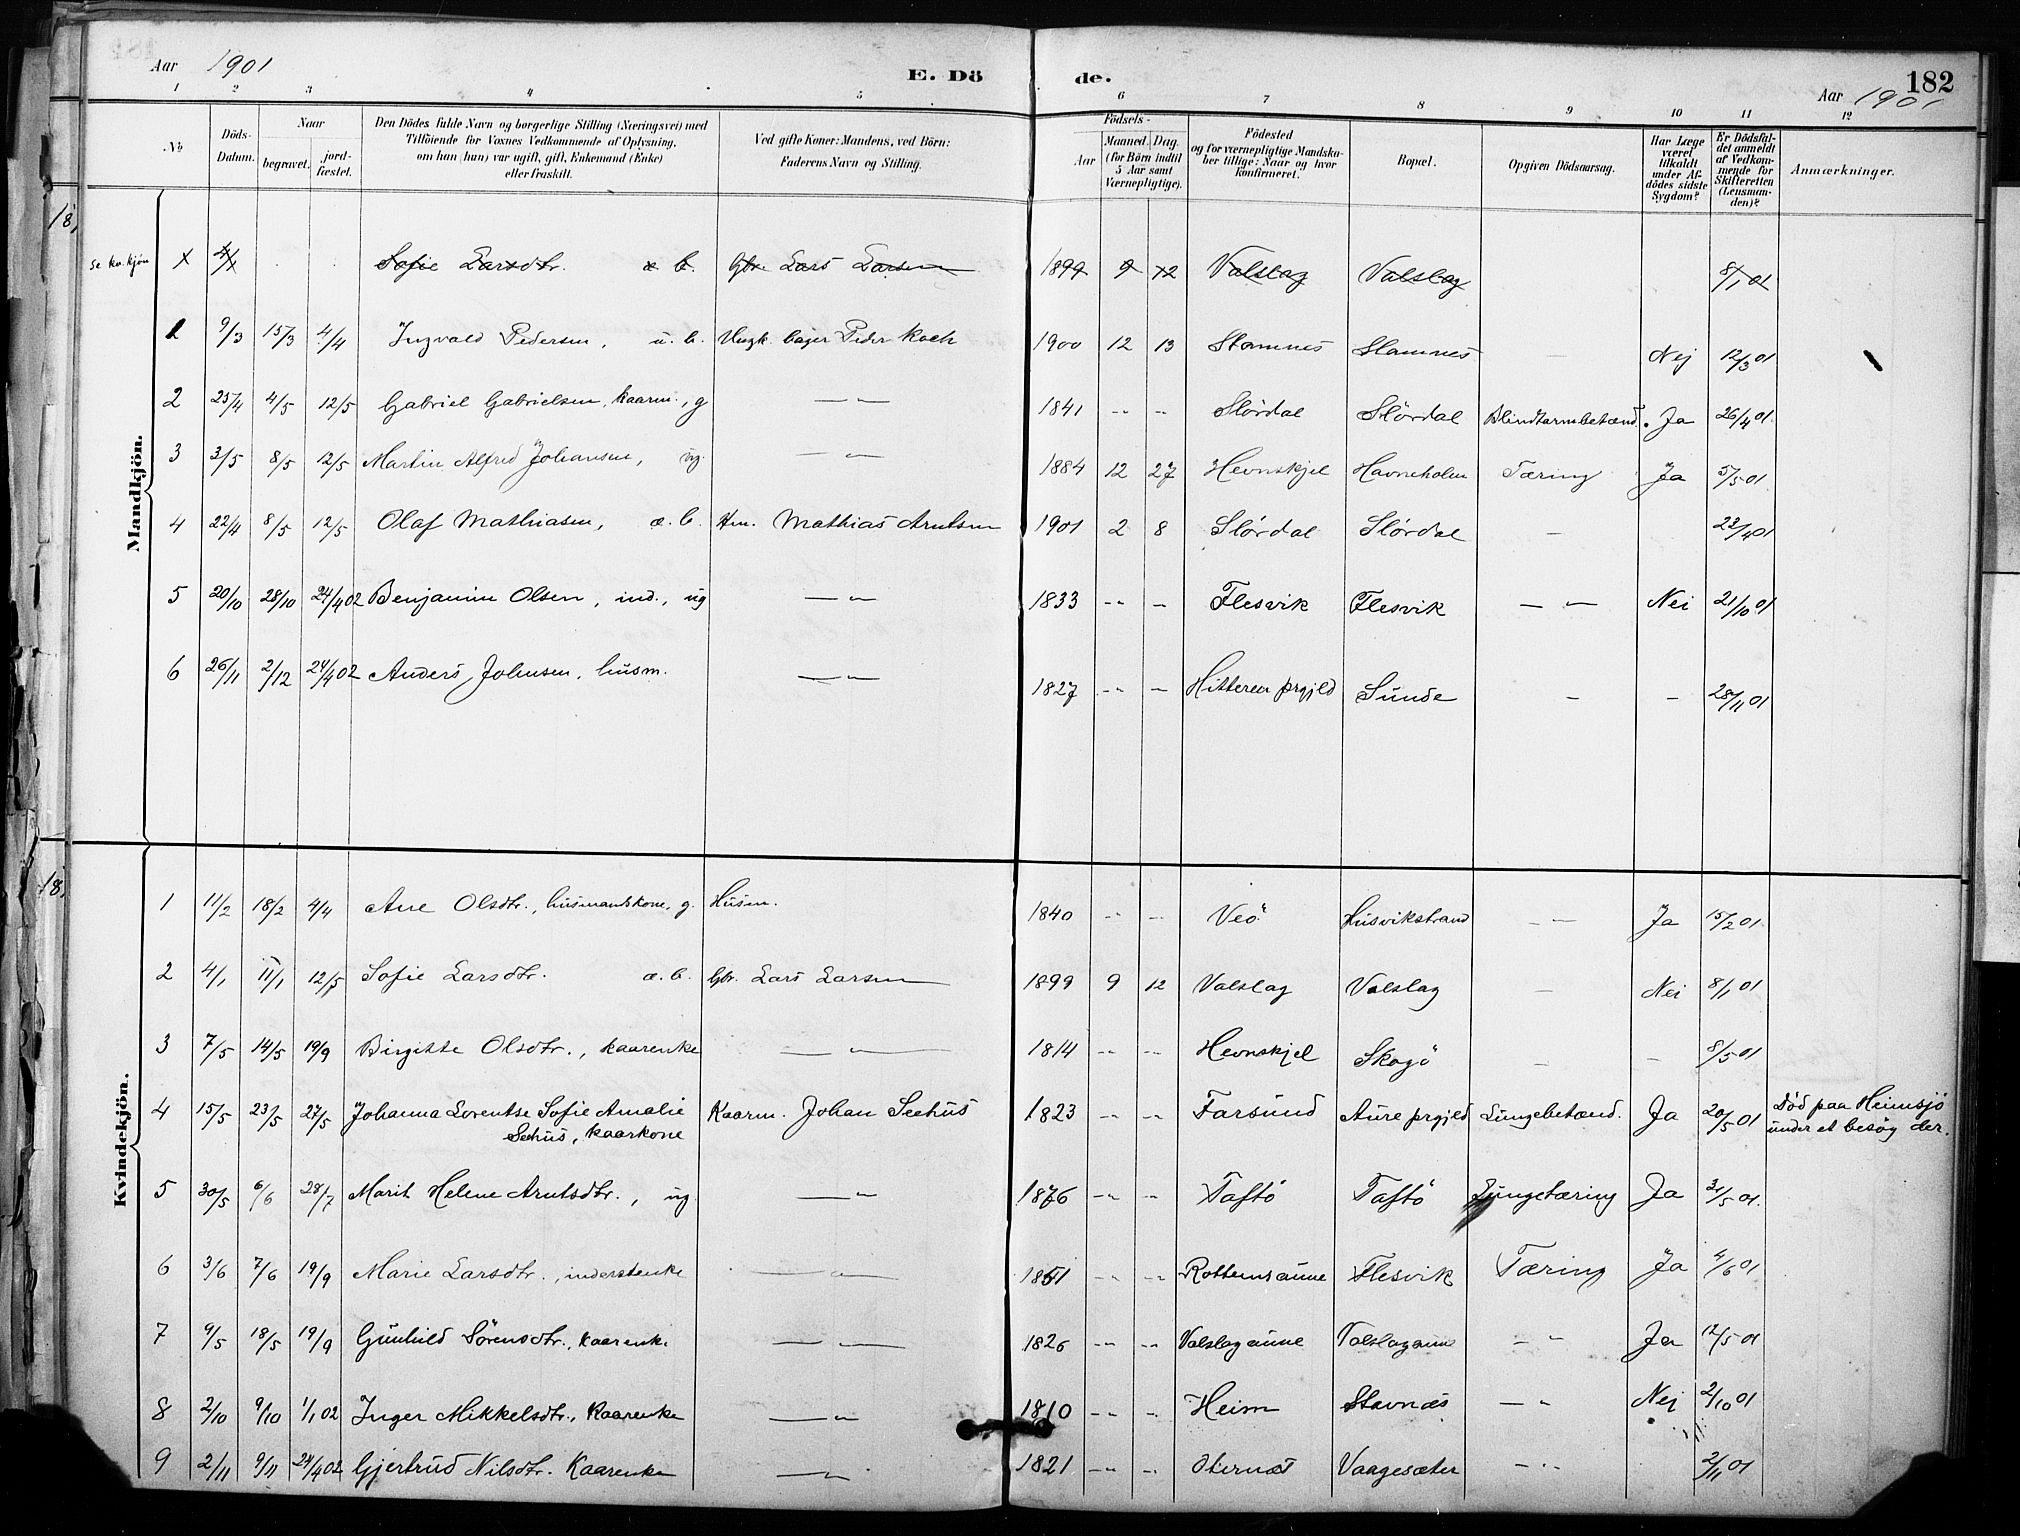 Aar 1901 E. Döde. Aar 1901 182
1 2 3 4 5 6 7 8 9 10 11 12
№ Döds-Datum. Naar begravet. jordfæstet. Den Dödes fulde Navn og borgerlige Stilling (Næringsvei) med Tilföiende for Voxnes Vedkommende af Oplysning, om han (hun) var ugift, gift, Enkemand (Enke) eller fraskilt. Ved gifte Koner: Mandens, ved Börn: Faderens Navn og Stilling. Födsels- Aar Maaned. Dag. (for Börn indtil 5 Aar samt Værnepligtige). Födested og for værnepligtige Mandskaber tillige: Naar og hvor konfirmeret. Bopæl. Opgiven Dödsaarsag. Har Læge været tilkaldt under Afdödes sidste Sygdom? Er Dödsfaldet anmeldt af Vedkommende for Skifteretten (Lensmanden)? Anmærkninger.
18,
Mandkjön.
se kv.kjön X 4/1 Sofie Larsdtr. æ. b. Gbr. Lars Larsen 1899 9 12 Valslag Valslag 8/1 01
1 9/3 15/3 4/4 Ingvald Pedersen, u. b. Ungk. bager Peder Koch 1900 12 13 Stamnes Stamnes — Nej 12/3 01
2 25/4 4/5 12/5 Gabriel Gabrielsen, kaarm., g — " — 1841 -- -- Slördal Slördal Blindtarmbetænd. Ja 26/4 01.
3 3/5 8/5 12/5 Martin Alfred Johansen, ug. — " — 1884 12 27 Hevnskjel Havneholm Tæring Ja 5/5 01.
4 22/4 8/5 12/5 Olaf Mathiasen, æ. b. Hm. Mathias Arntsen 1901 2 8 Slördal Slördal — 23/4 01
5 20/10 28/10 24/4 02 Benjamin Olsen, ind., ug — " — 1833 -- -- Flesvik Flesvik — " — Nei 21/10 01
6 26/11 2/12 24/4 02 Anders Johnsen, husm. — " — 1827 -- -- Hitteren prgjld Sunde — — 28/11 01
18,
Kvindekjön.
1 11/2 18/2 4/4 Ane Olsdtr., husmandskone, g. Husm. 1840 -- -- Veö Husvikstrand — Ja 15/2 01.
2 4/1 11/1 12/5 Sofie Larsdtr. æ. b. Gbr. Lars Larsen 1899 9 12 Valslag Valslag — Nei 8/1 01
3 7/5 14/5 19/9 Birgitte Olsdtr., kaarenke — " — 1814 -- -- Hevnskjel Skogö — — 8/5 01
4 15/5 23/5 27/5 Johanna Lorentse Sofie Amalie Kaarm. Johan Seehus 1823 -- -- Farsund Aure prgjld Lungebetænd. Ja 20/5 01 Död paa Heimsjö
Seehus, kaarkone under et besög der.
5 30/5 6/6 28/7 Marit Helene Arntsdtr., ug — " — 1876 -- -- Taftö Taftö Lungetæring Ja 31/5 01.
6 3/6 7/6 19/9 Marie Larsdtr., inderstenke — " — 1851 -- -- Rottemsaune Flesvik Tæring Ja 4/6 01
7 9/5 18/5 19/9 Gunhild Sörensdtr., kaarenke — " — 1826 -- -- Valslagaune Valslagaune — " Ja 12/5 01
8 2/10 9/10 1/1 02 Inger Mikkelsdtr., Kaarenke — " — 1810 -- -- Heim Stavnæs — " Nej 2/10 01
9 2/11 9/11 24/4 02 Gjertrud Nilsdtr. Kaarenke — " — 1821 -- -- Oternæs Vaagesæter — " 2/11 01